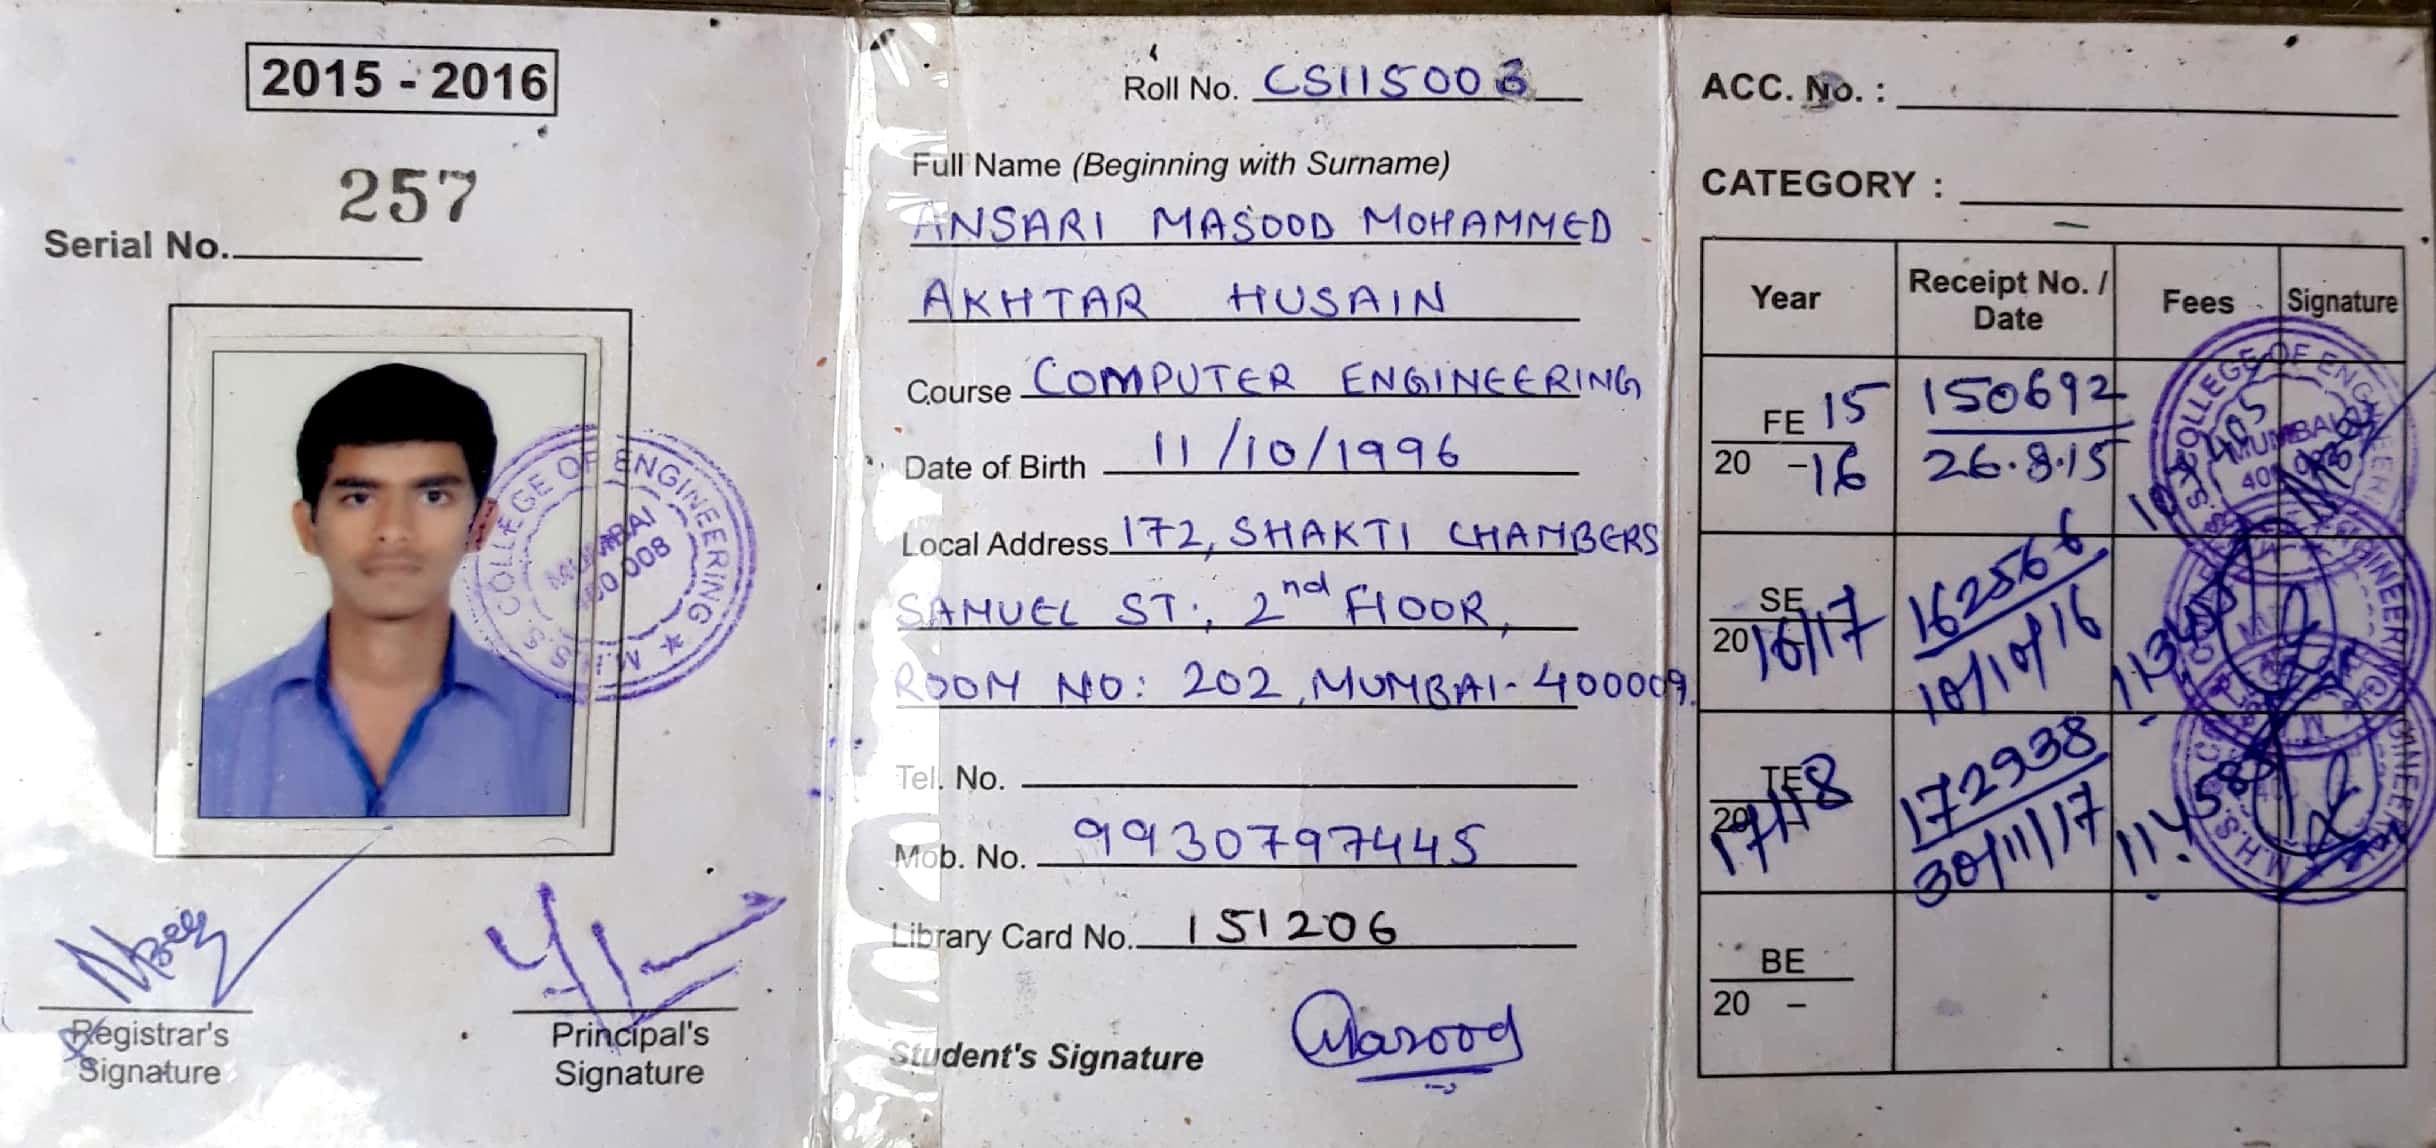 2015 - 2016
257
Serial No.
M.H. S.S. COLLEGE OF ENGINEERING ★
MUMBAI
400 008
Registrar's
Signature
Principal's
Signature
Roll No. CS115003
Full Name (Beginning with Surname)
ANSARI MASOOD MOHAMMED
AKHTAR HUSAIN
Course COMPUTER ENGINEERING
Date of Birth 11/10/1996
Local Address 172, SHAKTI CHAMBERS
SAMUEL ST., 2nd FlOOR,
ROOM NO: 202, MUMBAI- 400009.
Tel. No.
Mob. No. 9930797445
Library Card No. 151206
Student's Signature Masood
ACC. No. :
CATEGORY :
Year Receipt No. / Date Fees Signature
FE 2015-16 150692 26.8.15
SE 2016/17 162566 10/10/16
TE 20 17/18 172938 30/11/17
BE
20 –